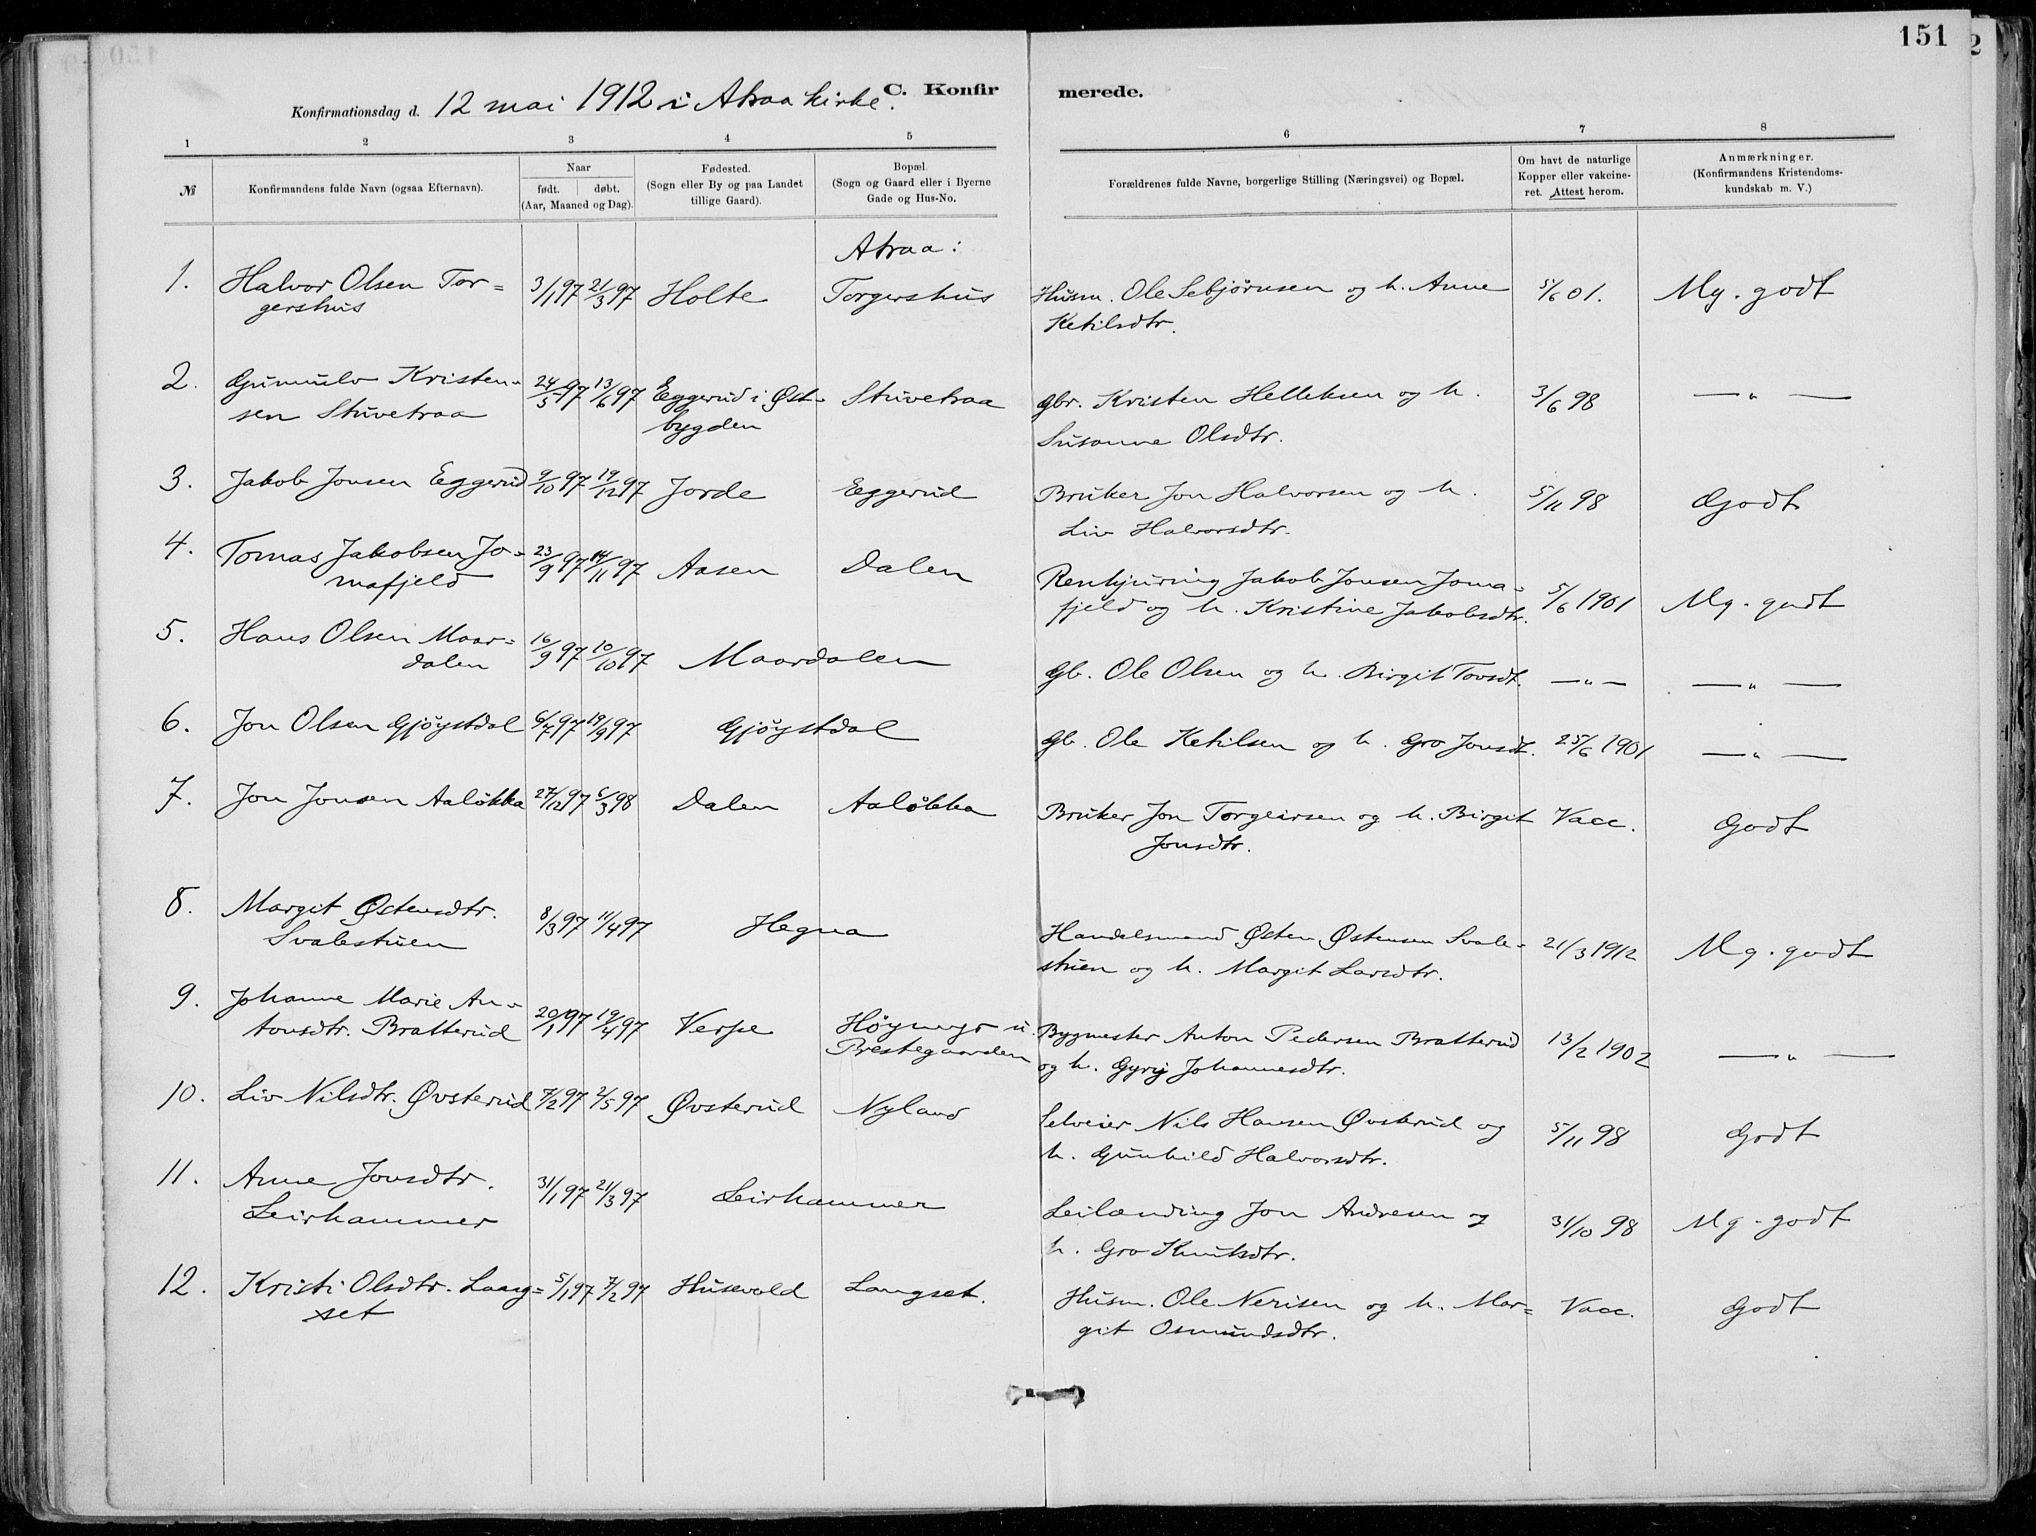 151
C. Konfir merede.
Konfirmationsdag d. 12 mai 1912 i Atraa kirke.
1 2 3 4 5 6 7 8
№ Konfirmandens fulde Navn (ogsaa Efternavn). Naar født. døbt. (Aar, Maaned og Dag). Fødested. (Sogn eller By og paa Landet tillige Gaard). Bopæl. (Sogn og Gaard eller i Byerne Gade og Hus-No. Forældrenes fulde Navne, borgerlige Stilling (Næringsvei) og Bopæl. Om havt de naturlige Kopper eller vakcineret. Attest herom. Anmærkninger. (Konfirmandens Kristendomskundskab m. V.)
Atraa:
1. Halvor Olsen Tor= 3/1 97 21/3 97 Holte Torgershus Husm. Ole Sebjørnsen og h. Anne 5/6 01. Mg. godt
gershus Ketilsdtr.
2. Gunnulv Kristen- 24/5 97 13/6 97 Eggerud i Øst- Stuvetraa Gbr. Kristen Helleksen og h. 3/6 98 — " —
sen Stuvetraa bygden Susanne Olsdtr.
3. Jakob Jonsen Eggerud 9/10 97 19/12 97 Jorde Eggerud Bruker Jon Halvorsen og h. 5/11 98 Godt
Liv Halvorsdtr.
4. Tomas Jakobsen Jo- 23/9 97 14/11 97 Aasen Dalen Renhjuring Jakob Jonsen Joma- 5/6 1901 Mg. godt
mafjeld fjeld og h. Kristine Jakobsdtr.
5. Hans Olsen Maar= 16/9 97 10/10 97 Maardalen Gb. Ole Olsen og h. Birgit Tovsdt. — " — — " —
dalen
6. Jon Olsen Gjøystdal 6/7 97 19/9 97 Gjøystdal Gb. Ole Ketilsen og h. Gro Jonsdt. 25/6 1901 — " —
7. Jon Jonsen Aaløkka 27/12 97 6/3 98 Dalen Aaløkka Bruker Jon Torgeirsen og h. Birgit Vacc. Godt
Jonsdtr.
8. Margit Østensdtr. 8/3 97 11/4 97 Hegna Handelsmand Østen Østensen Svale- 21/3 1912 Mg. godt
Svalestuen stuen og h. Margit Larsdtr.
9. Johanne Marie An- 20/1 97 19/4 97 Verpe Høymyr u. Bygmester Anton Pedersen Bratterud 13/2 1902 — " —
tonsdtr. Bratterud Prestegaarden og h. Gyri Johannesdtr.
10. Liv Nilsdtr. Øvsterud 7/2 97 2/5 97 Øvsterud Nyland Selveier Nils Hansen Øvsterud og 5/11 98 Godt
h. Gunhild Halvorsdtr.
11. Anne Jonsdtr. 31/1 97 21/3 97 Leirhammer Leilænding Jon Andresen og 31/10 98 Mg. godt
Leirhammer h. Gro Knutsdtr.
12. Kristi Olsdtr. Lang= 5/1 97 7/2 97 Husevold Langset. Husm. Ole Nerisen og h. Mar= Vacc. Godt
set git Osmundsdtr.